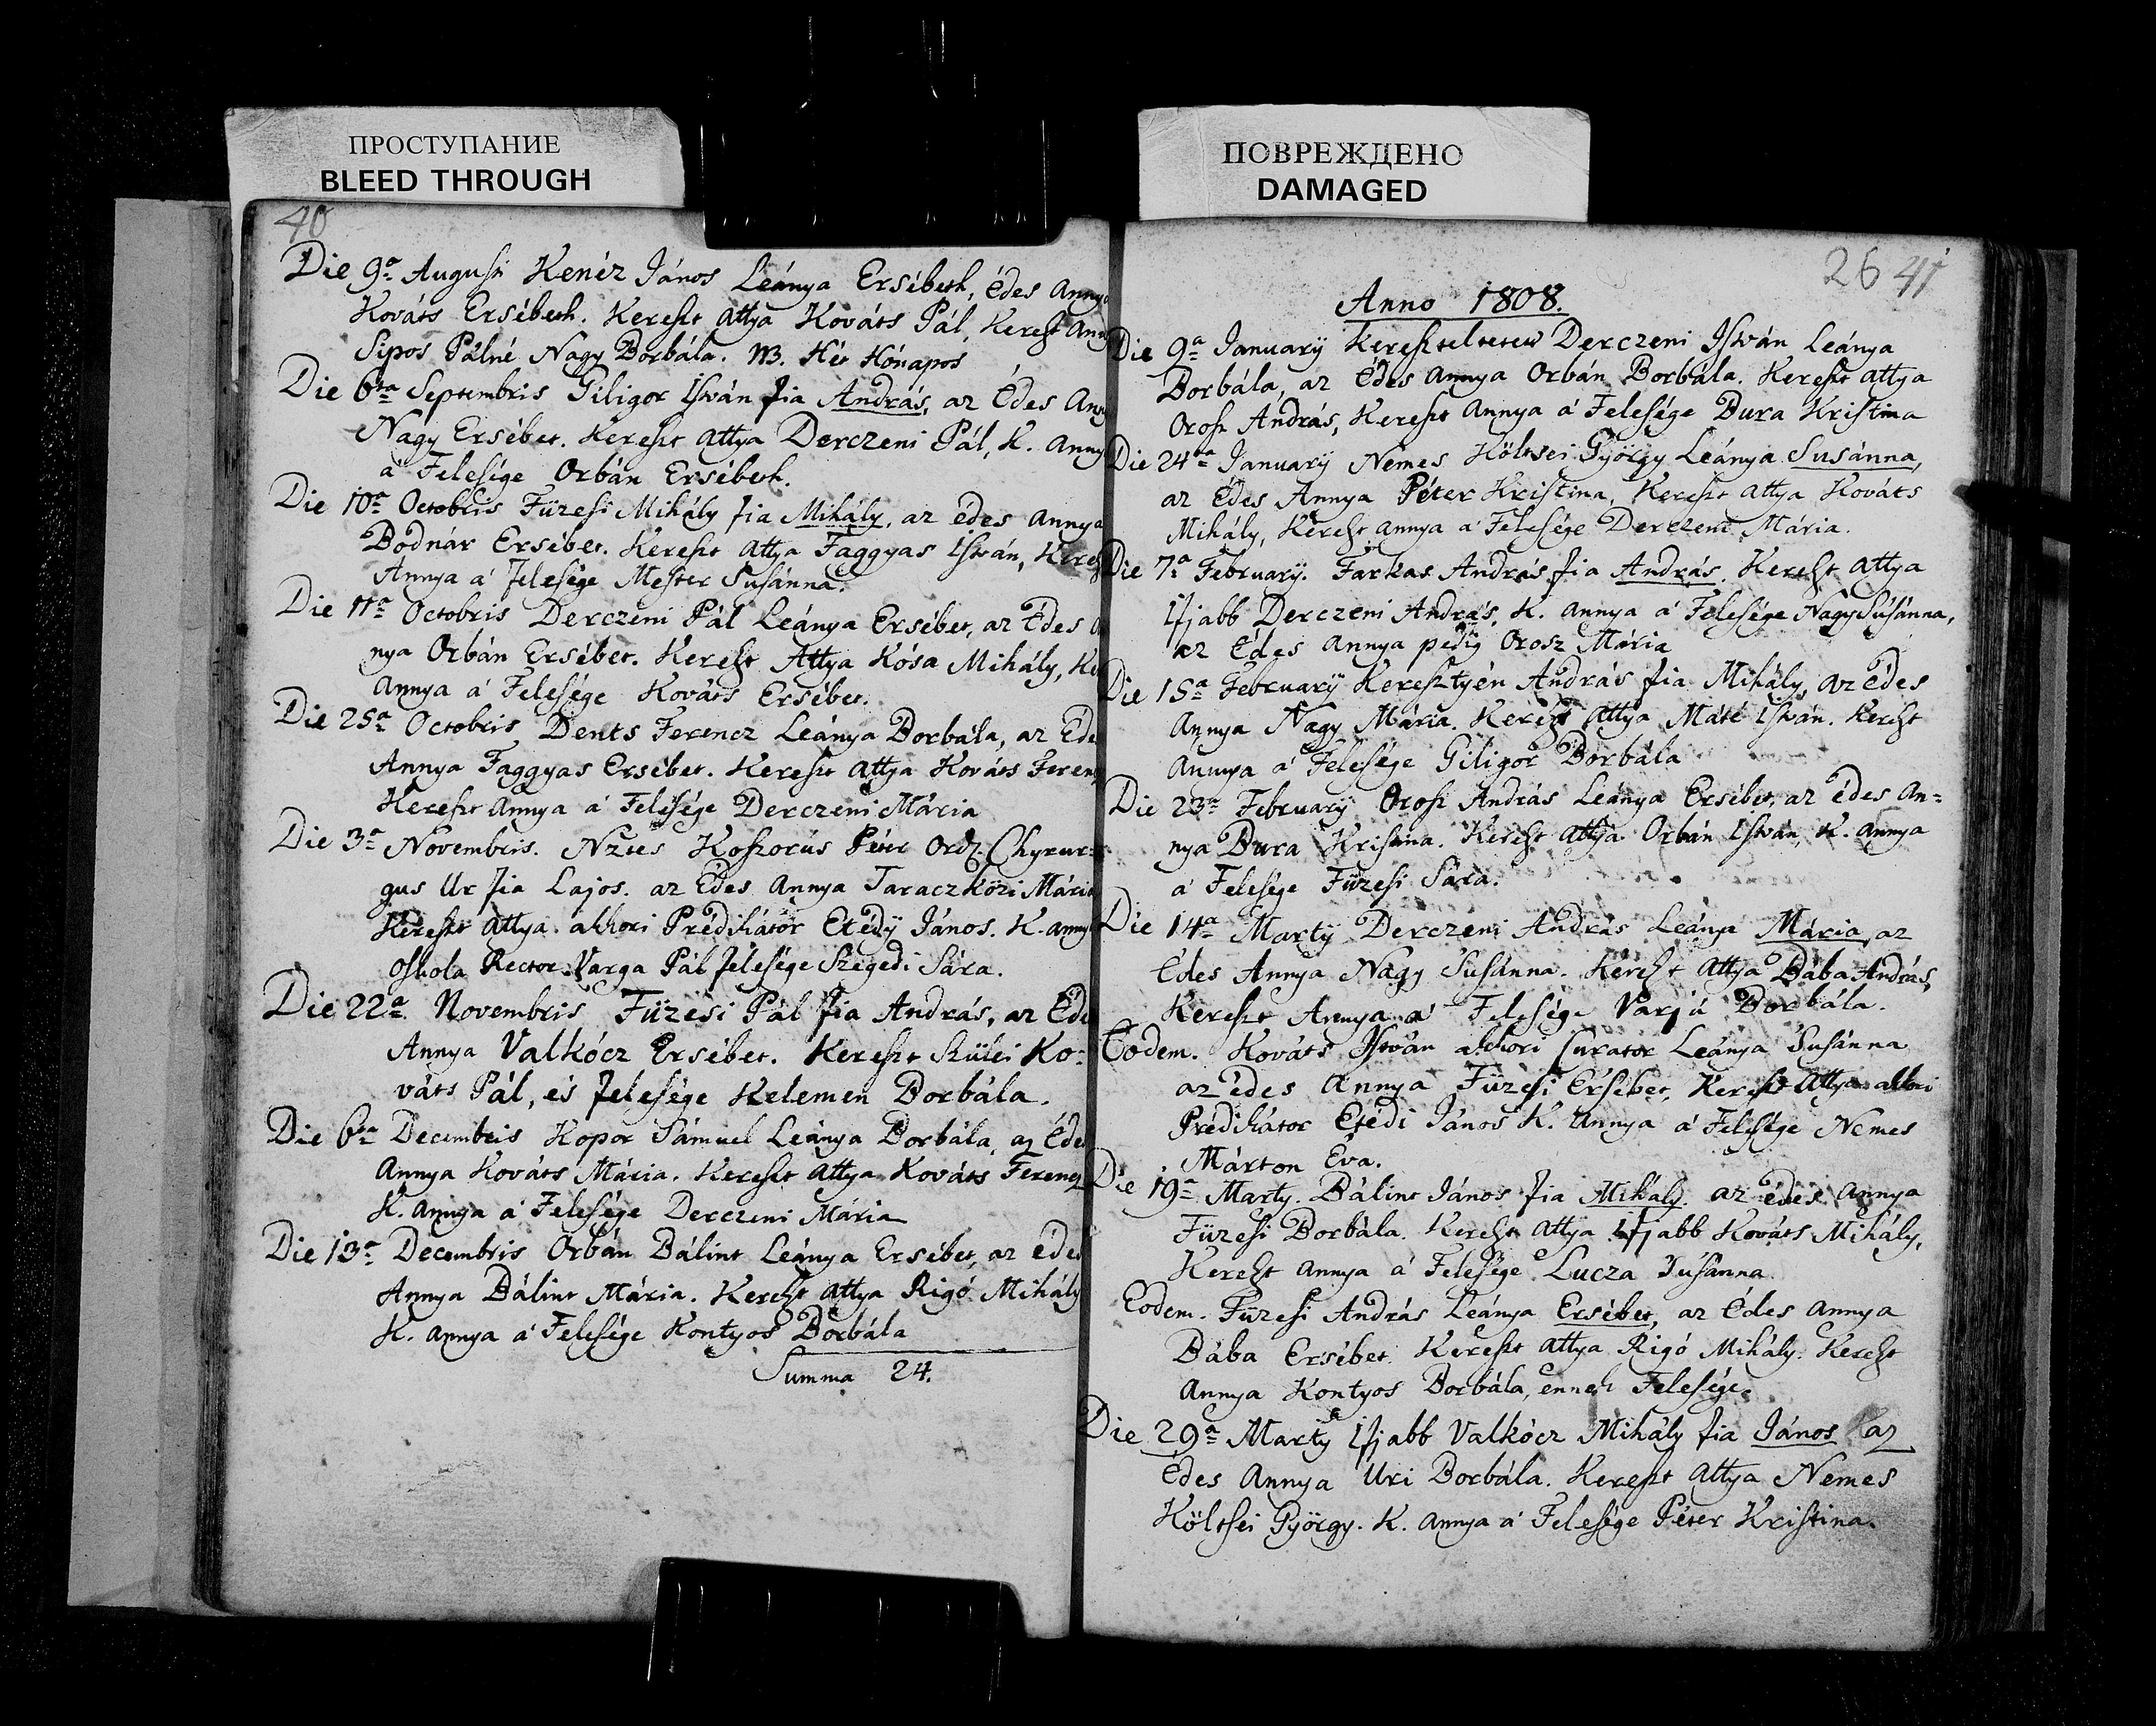 ПРОСТУПАНИЕ
BLEED THROUGH
40
Die 9a Augusti Kenéz János Leánya Ersébeth, édes Annya
Kováts Ersébeth. Kereszt Attya Kováts Pál, Kereszt Ann
Sipos Pálné Nagy Borbála. NB. Hét Hónapos
Die 6ta Septembris Giligor István fia András, az Édes Any
Nagy Ersébet. Kereszt Attya Derczeni Pál, K. Anny
a' Felesége Orbán Ersébeth.
Die 10a Octobris Füzesi Mihály fia Mihály, az édes Annya
Bodnár Ersébet. Kereszt Attya Faggyas István, Keresz
Annya a' felesége Mester Susánna.
Die 11a Octobris Derczeni Pál Leánya Ersébet, az Édes A
nya Orbán Ersébet. Kereszt Attya Kósa Mihály, Ke
Annya a' Felesége Kováts Ersébet.
Die 25a Octobris Dents Ferencz Leánya Borbála, az Éde
Annya Faggyas Ersébet. Kereszt Attya Kováts Feren
Kereszt Annya a' Felesége Derczeni Mária
Die 3a Novembris. Nzts Koszorús Péter Ord. Chyrur=
gus Ur fia Lajos. az Édes Annya Taraczközi Mária
Kereszt Attya akkori Prédikátor Etédÿ János. K. anny
Oskola Rector Varga Pál felesége Szegedi Sára.
Die 22a Novembris Füzesi Pál fia András, az Éde
Annya Valkócz Ersébet. Kereszt Szülei Ko=
váts Pál, és felesége Kelemen Borbála.
Die 6ta Decembris Kopor Sámuel Leánya Borbála, az Éde
Annya Kováts Mária. Kereszt Attya Kováts Ferencz
K. Annya a' Felesége Derczeni Mária
Die 13a Decembris Orbán Bálint Leánya Ersébet, az édes
Annya Bálint Mária. Kereszt Attya Rigó Mihály
K. Annya a' Felesége Kontyos Borbála
Summa 24.
ПОВРЕЖДЕНО
DAMAGED
26 41
Anno 1808.
Die 9a Januarÿ Kereszteltetett Derczeni István Leánya
Borbála, az Édes Annya Orbán Borbála. Kereszt Attya
Orosz András, Kereszt Annya a' Felesége Bura Kristina
Die 24a Januarÿ Nemes Költsei György Leánya Susánna,
az Édes Annya Péter Kristina, Kereszt Attya Kováts
Mihály, Kereszt annya a' Felesége Derczeni Mária.
Die 7a Februarÿ. Farkas András fia András. Kereszt Attya
Ifjabb Derczeni András, K. Annya a' Felesége Nagy Susánna,
az Édes Annya pedig Orosz Mária
Die 15a Februarÿ Keresztyén András fia Mihály, az Édes
Annya Nagy Mária. Kereszt Attya Máté István. Kereszt
Annya a' Felesége Giligor Borbála
Die 23a Februarÿ Orosz András Leánya Ersébet, az édes An=
nya Bura Kristina. Kereszt Attya Orbán István, K. Annya
a' Felesége Füzesi Sára.
Die 14a Martÿ Derczeni András Leánya Mária, az
Édes Annya Nagy Susánna. Kereszt Attya Bába András,
Kereszt Annya a' Felesége Varjú Borbála.
Eodem. Kováts István akkori Curator Leánya Susánna
az édes Annya Füzesi Ersébet, Kereszt Attya akkori
Prédikátor Etédi János K. Annya a' Felesége Nemes
Márton Éva.
Die 19a Marty. Bálint János fia Mihály. az édes Annya
Füzesi Borbála. Kereszt Attya Ifjabb Kováts Mihály,
Kereszt Annya a' Felesége Lucza Susánna.
Eodem. Füzesi András Leánya Ersébet, az Édes Annya
Bába Ersébet. Kereszt Attya Rigó Mihály. Kereszt
Annya Kontyos Borbála, ennek Felesége.
Die 29a Marty Ifjabb Valkócz Mihály fia János az
Édes Annya Uri Borbála. Kereszt Attya Nemes
Költsei György. K. Annya a' Felesége Péter Kristina.